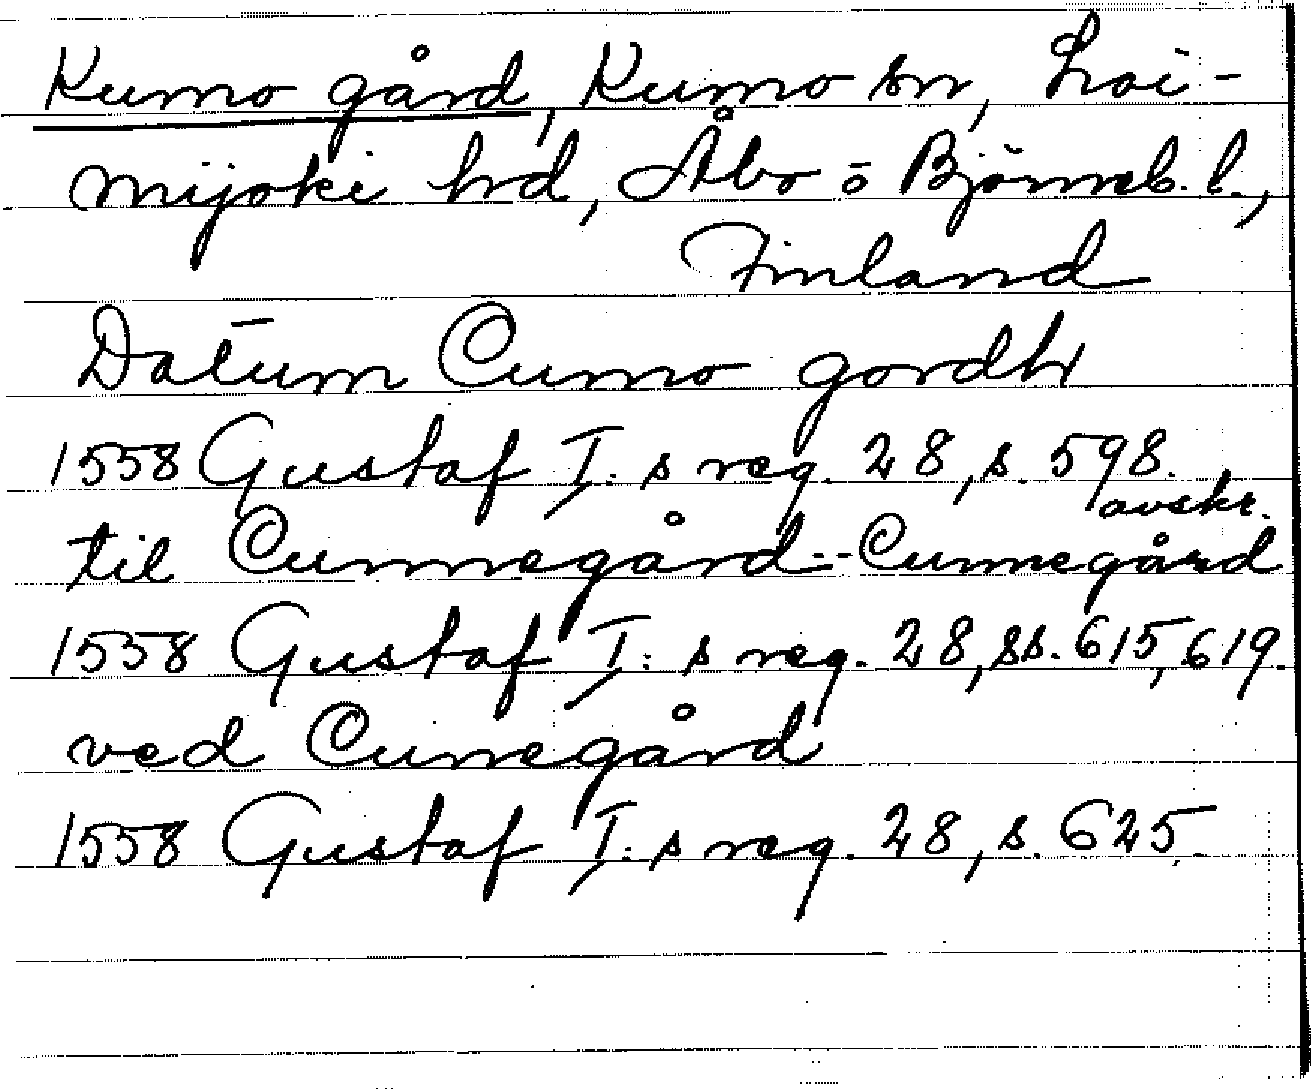 Kumo gård, Kumo sn, Loi-
mijoki hd, Åbo o Björneb. l.,
Finland
Datum Cumo gordh
1558 Gustaf I:s reg. 28, s. 598.
avskr.
til Cumnegård -- Cumnegård
1558 Gustaf I:s reg. 28, ss. 615, 619.
ved Cumegård
1558 Gustaf I:s reg. 28, s. 625.